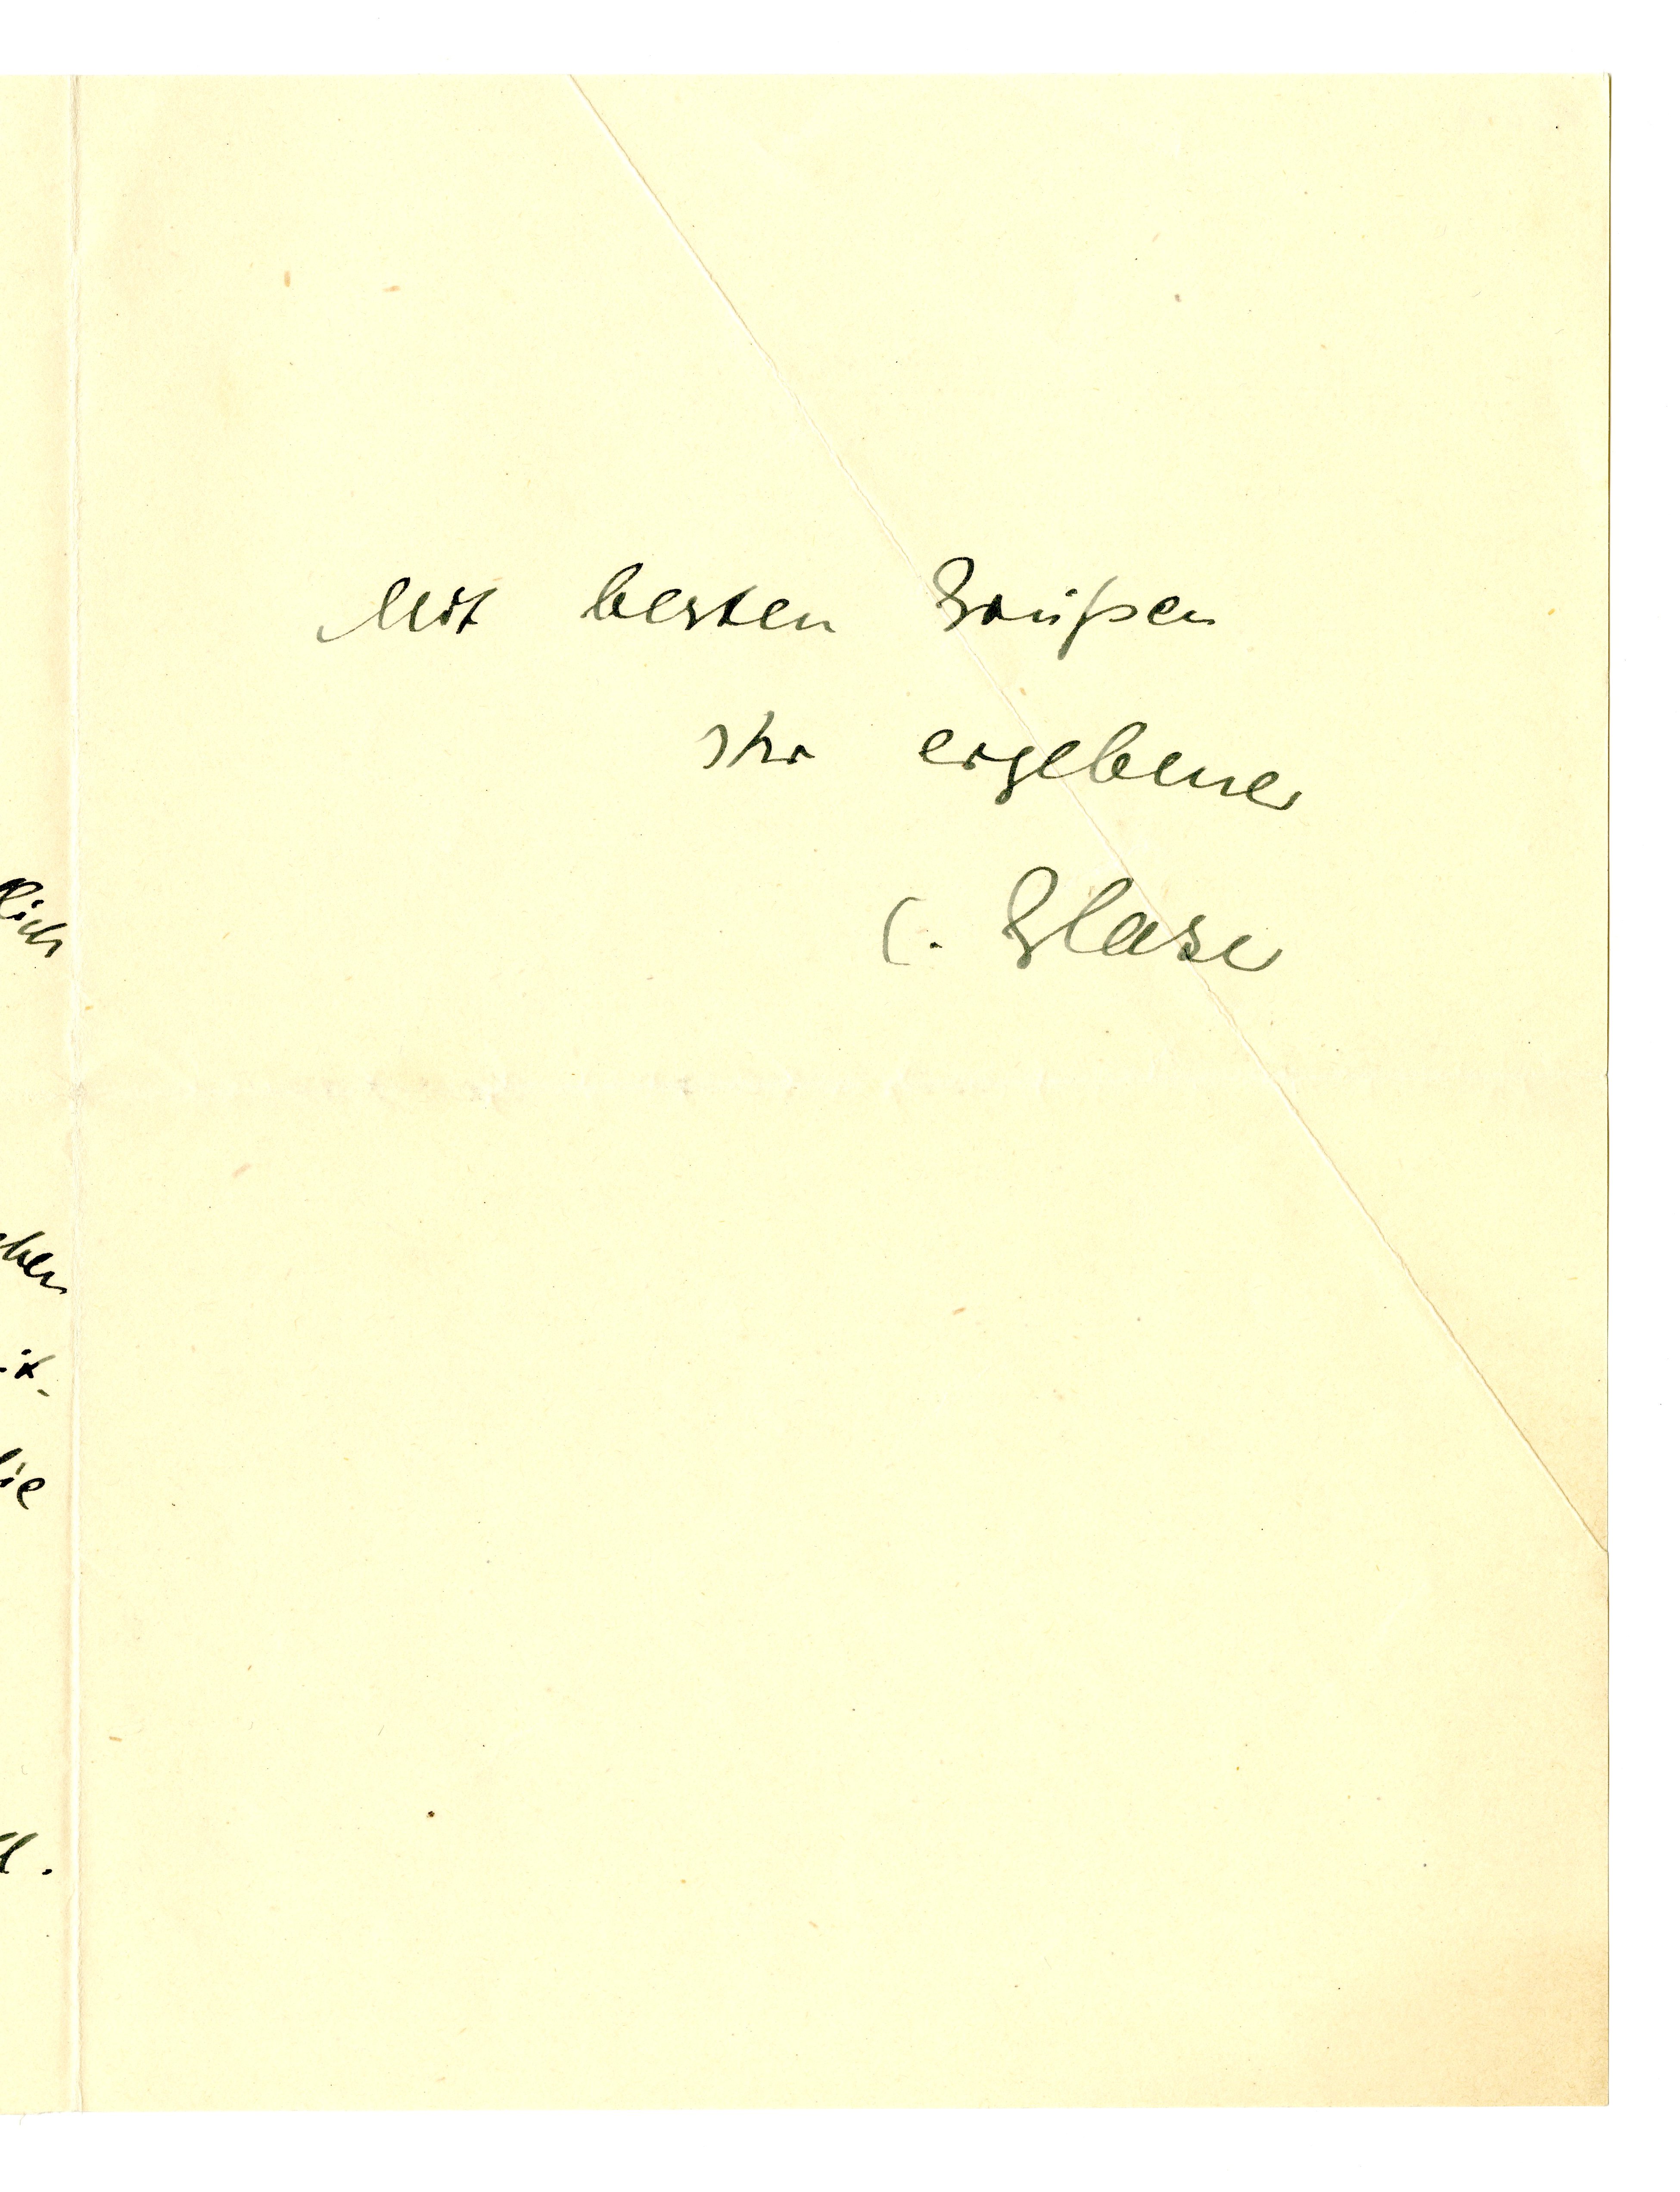 Mit besten Grüßen
Ihr ergebener
C. Glaser
lich
chen
die